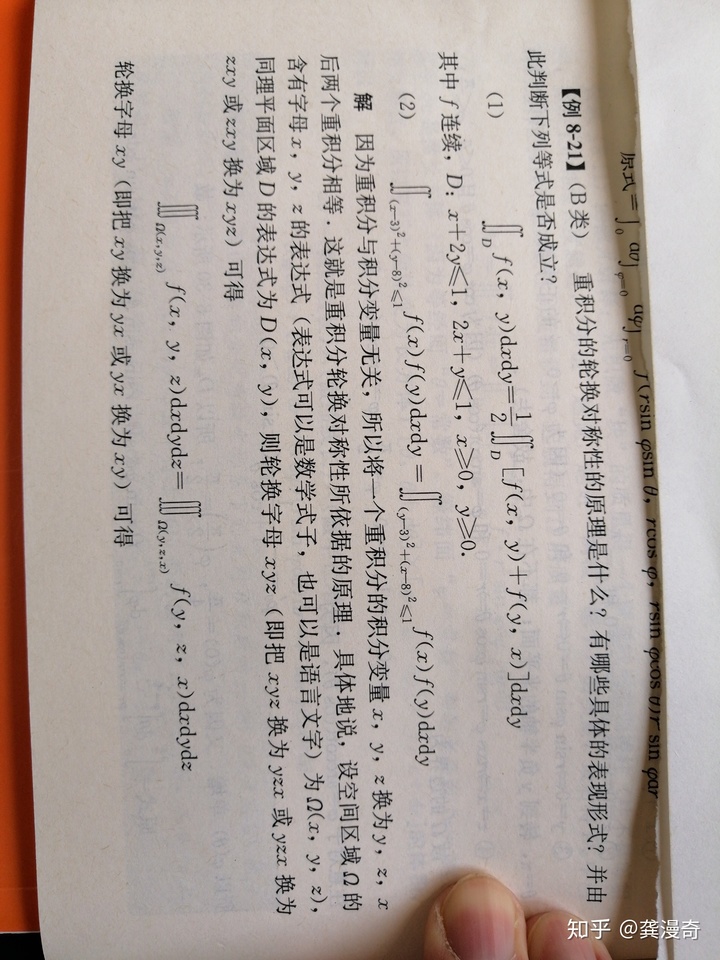 原式=∫₀ dθ∫φ=0 dφ∫r=0 f(rsin φsin θ, rcos φ, rsin φcos θ)r sin φdr
【例 8-21】(B 类) 重积分的轮换对称性的原理是什么? 有哪些具体的表现形式? 并由
此判断下列等式是否成立?
(1)
∬_D f(x, y)dxdy=1/2 ∬_D [f(x, y)+f(y, x)]dxdy
其中 f 连续, D: x+2y⩽1, 2x+y⩽1, x⩾0, y⩾0.
(2)
∬_{(x-3)²+(y-8)²⩽1} f(x)f(y)dxdy=∬_{(y-3)²+(x-8)²⩽1} f(x)f(y)dxdy
解 因为重积分与积分变量无关, 所以将一个重积分的积分变量 x, y, z 换为 y, z, x
后两个重积分相等. 这就是重积分轮换对称性所依据的原理. 具体地说, 设空间区域 Ω 的
含有字母 x, y, z 的表达式 (表达式可以是数学式子, 也可以是语言文字) 为 Ω(x, y, z),
同理平面区域 D 的表达式为 D(x, y), 则轮换字母 xyz (即把 xyz 换为 yzx 或 yzx 换为
zxy 或 zxy 换为 xyz) 可得
∭_{Ω(x,y,z)} f(x, y, z)dxdydz=∭_{Ω(y,z,x)} f(y, z, x)dxdydz
轮换字母 xy (即把 xy 换为 yx 或 yx 换为 xy) 可得
知乎 @龚漫奇